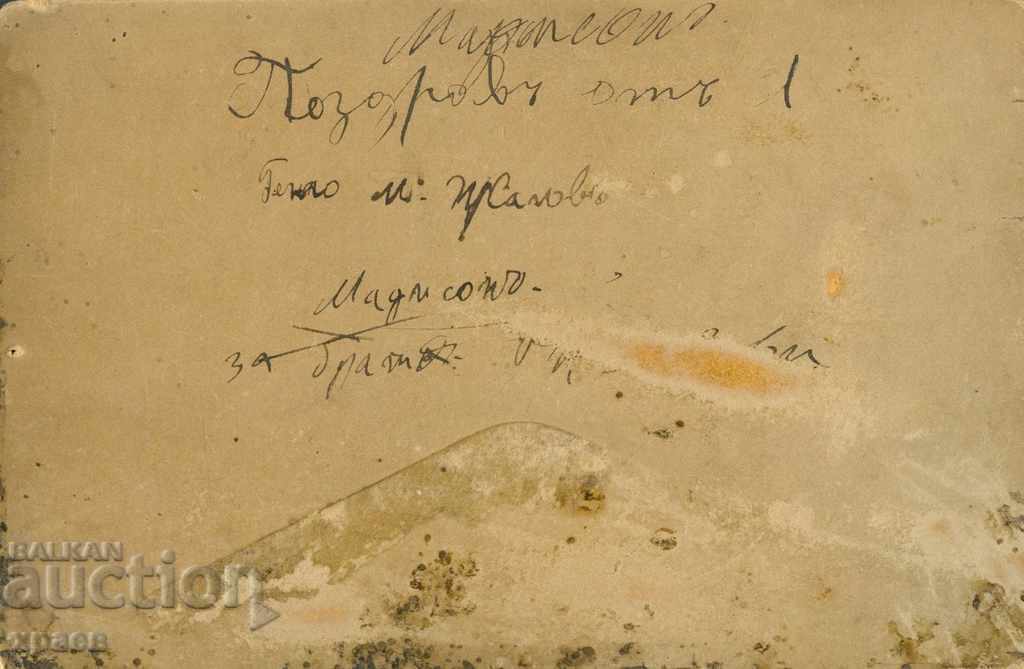 Мадисонъ.
Поздровъ отъ
Генчо М. Жаловъ
Мадисонъ.
за братя
BALKAN
auction
храев